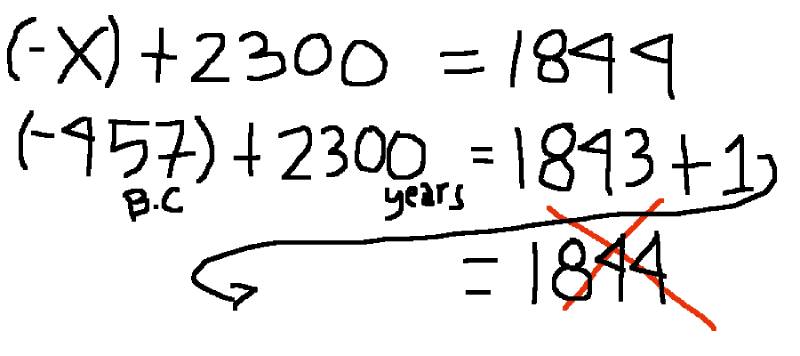 (-X) + 2300 = 1844
(-457) + 2300 = 1843 + 1
B.C years
= 1844